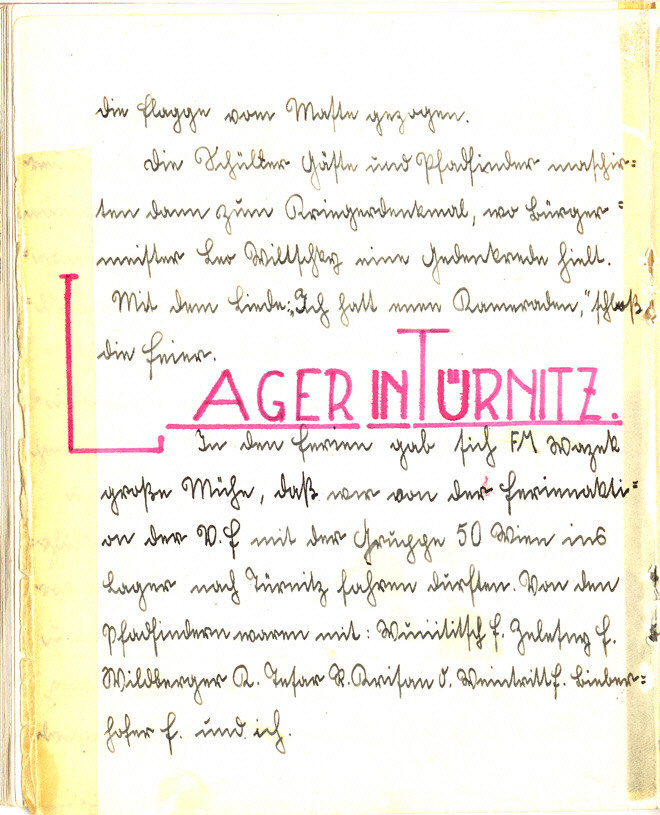 die Flagge vom Maste gezogen.
Die Schüller Gäste und Pfadfinder maschir=
ten dann zum Kriegerdenkmal, wo Bürger=
meister Leo Wiltschky eine Gedenkrede hielt.
Mit dem Liede: „Ich hatt enen Kameraden," schloß
die Feier.
LAGER IN TÜRNITZ.
In den Ferien gab sich FM Wazek
große Mühe, daß wir von der Ferienakti=
on der V.F mit der Gruppe 50 Wien ins
Lager nach Türnitz fahren durften. Von den
Pfadfindern waren mit: F. Zelesny F.
Wildberger R. Tesar R. Krisan O. Weintritt F. Bieber=
hofer F. und ich.